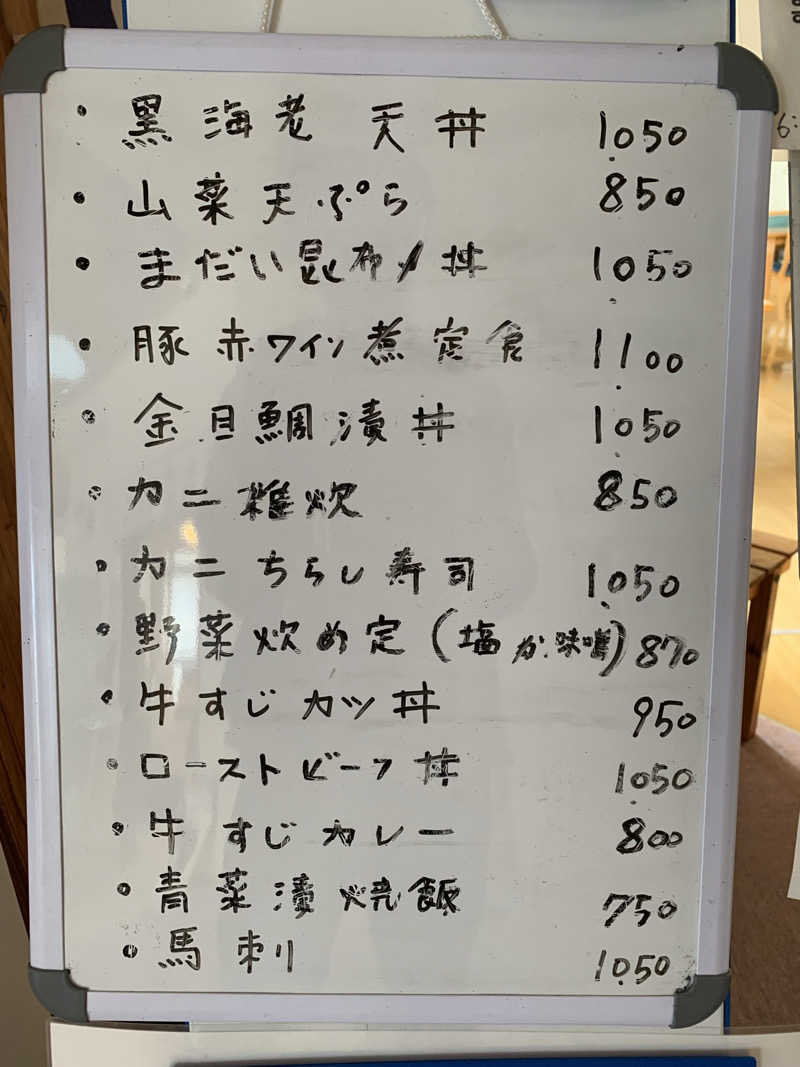 ・黒海老 天丼 1,050
・山菜天ぷら 850
・まだい昆布〆丼 1,050
・豚赤ワイン煮定食 1,100
・金目鯛漬丼 1,050
・カニ雑炊 850
・カニちらし寿司 1,050
・野菜炊め定(塩か味噌) 870
・牛すじカツ丼 950
・ローストビーフ丼 1,050
・牛すじカレー 800
・青菜漬焼飯 750
・馬刺 1,050
6: